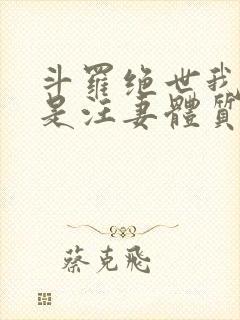 斗羅绝世我
是汪妻體質
蔡克飛